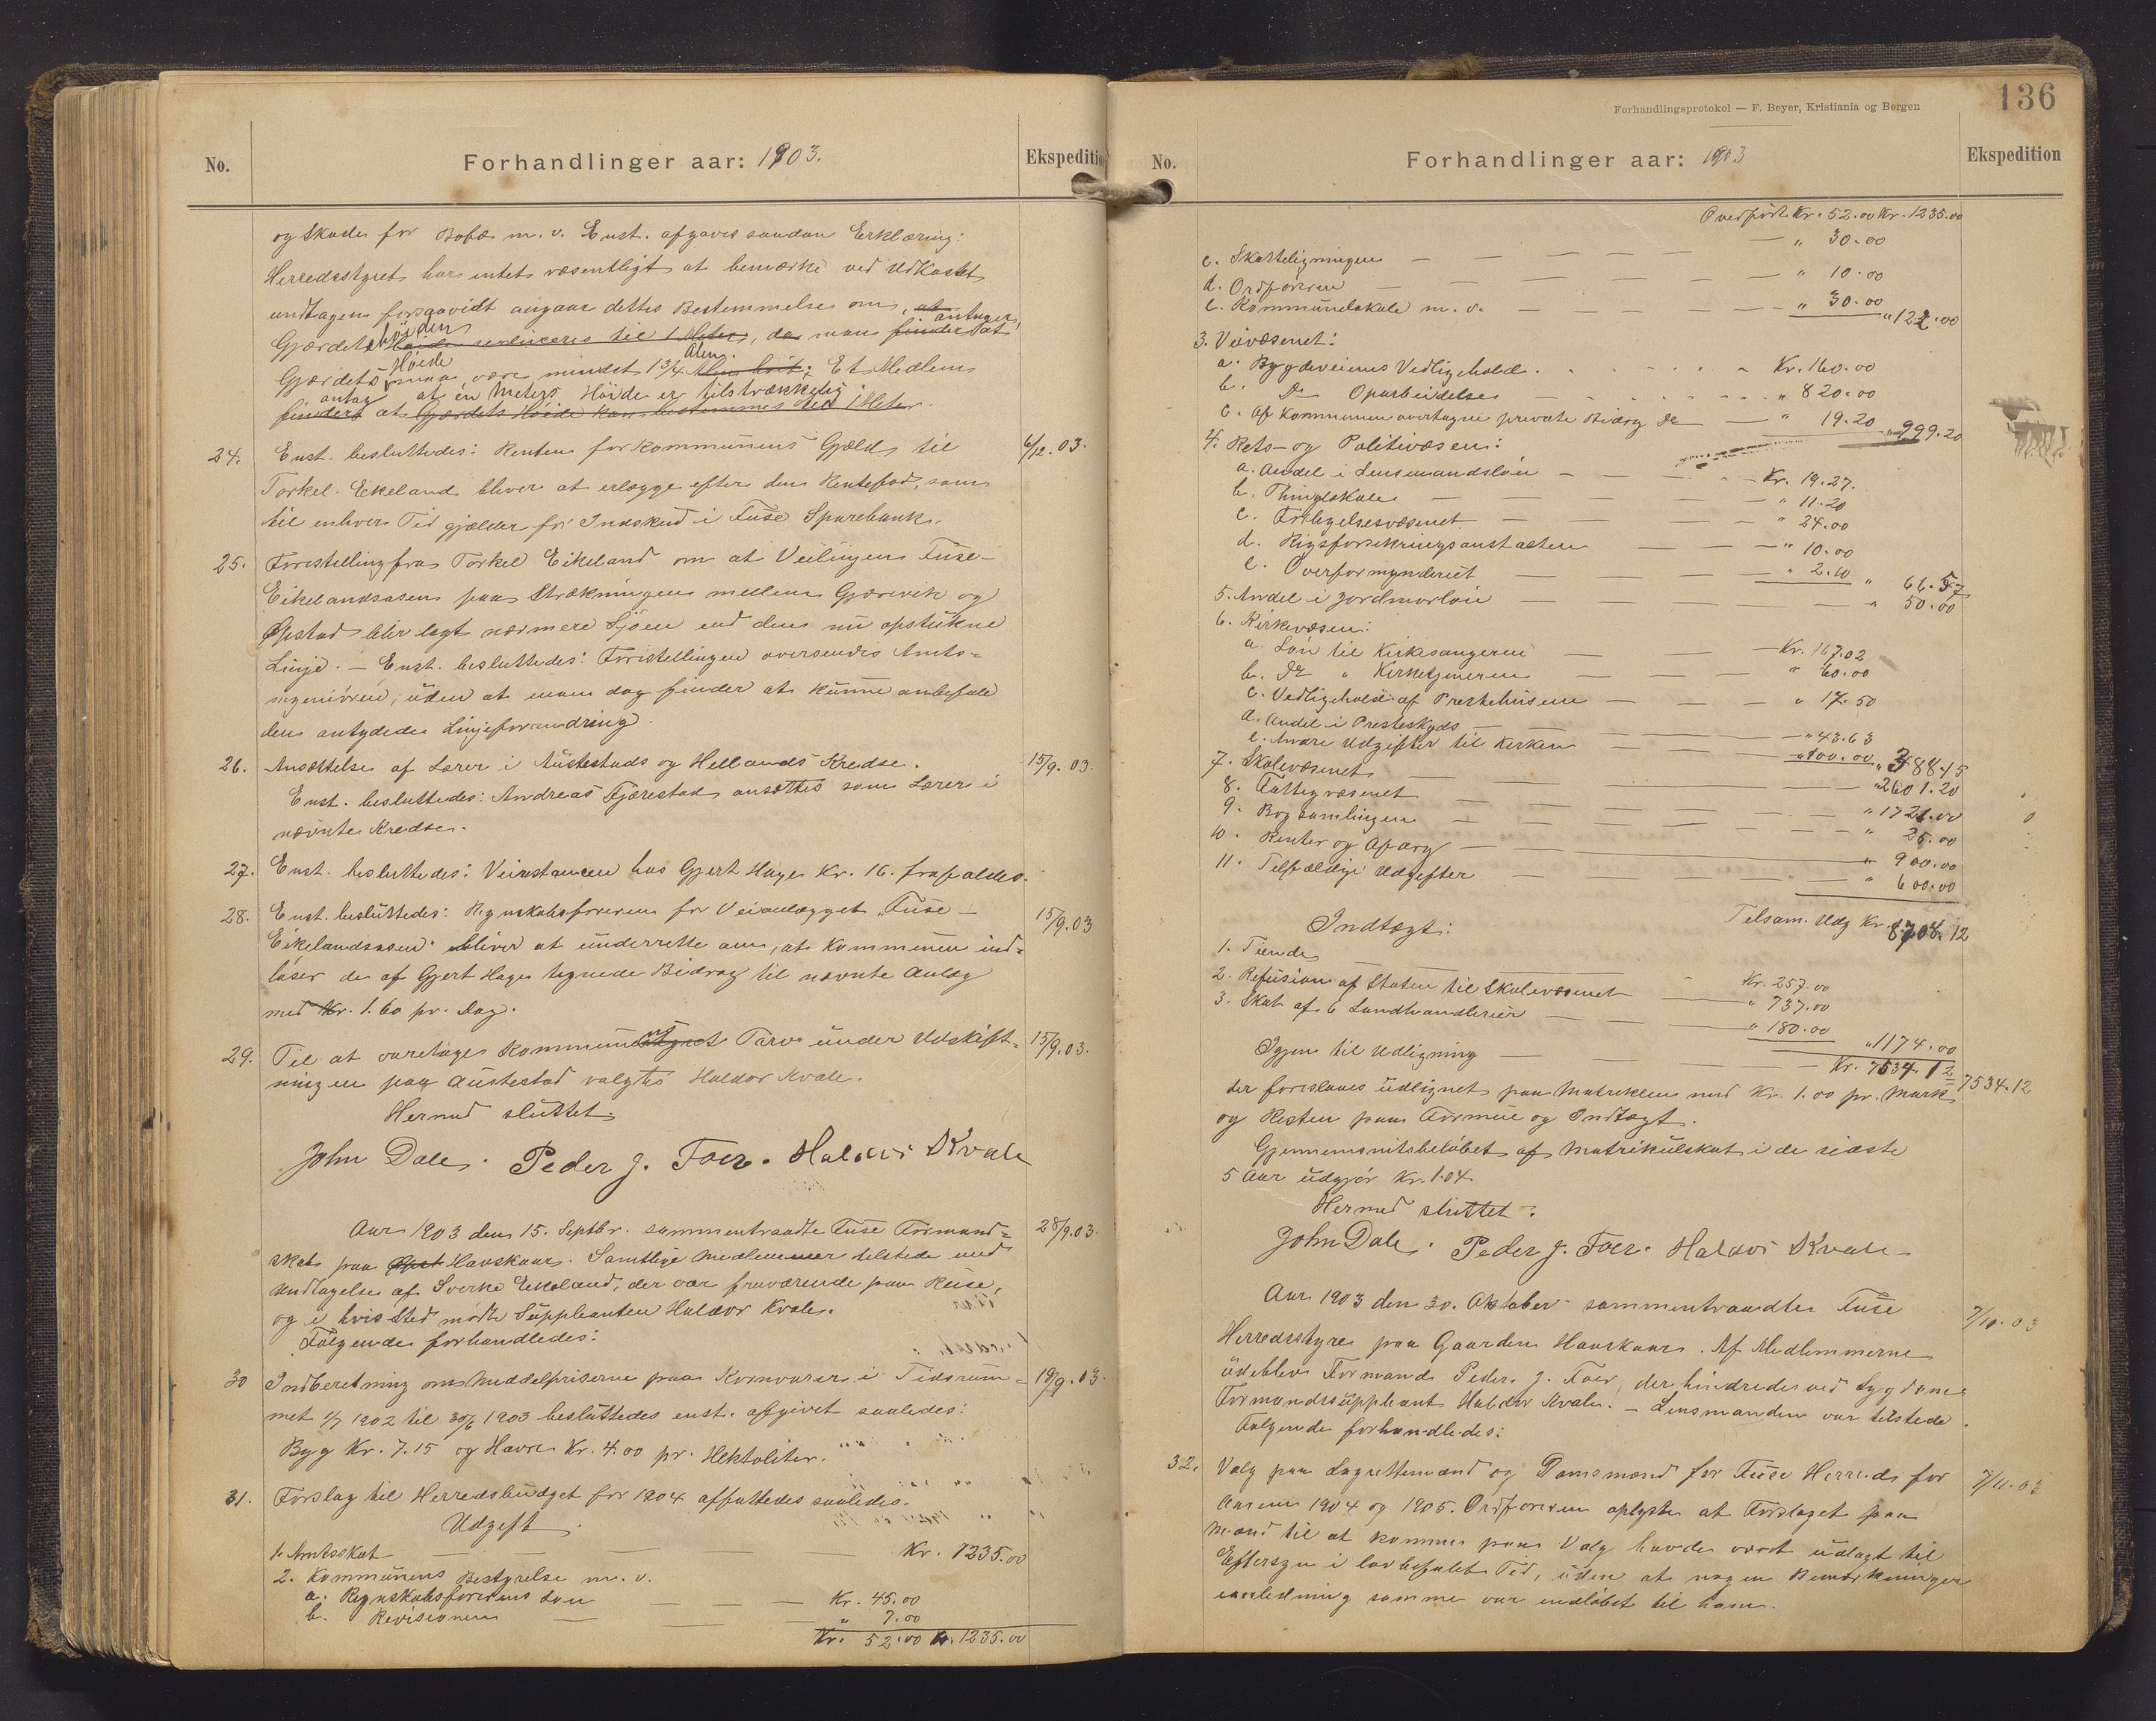 No.
Forhandlinger aar: 1903.
Ekspedition
og Skade for Bofæ m. v. Enst. afgaves saadan Erklæring:
Herredsstyret har intet væsentligt at bemærke ved Udkastet
undtagen forsaavidt angaar dettes Bestemmelse om, at
høiden antager,
Gjærdets Høide reduceres til 1 Meter, da man finder at
Høide Alen.
Gjærdets maa være mindst 1 3/4 Alen høit; Et Medlem
antog at en Meters Höide er tilstrækkelig.
finder at Gjærdets Höide kan bestemmes til 1 Meter.
24. Enst. besluttedes: Renten for Kommunens Gjæld til 6/12.03.
Torkel Eikeland bliver at erlægge efter den Rentefod, som
til enhver Tid gjælder for Indskud i Fuse Sparebank.
25. Forestilling fra Torkel Eikeland om at Veilinjen Fuse-
Eikelandsosen paa Strækningen mellem Gjærevik og
Opstad blir lagt nærmere Sjöen end den nu opstukne
Linje. — Enst. besluttedes: Forestillingen oversendes Amts=
ingeniören, uden at man dog finder at kunne anbefale
den antydede Linjeforandring.
26. Ansættelse af Lærer i Austestads og Hellands Kredse. 15/9.03.
Enst. besluttedes: Andreas Tjærestad ansættes som Lærer i
nævnte Kredse.
27. Enst. besluttedes: Veirestancen hos Gjert Hage Kr. 16. frafaldes.
28. Enst. besluttedes: Regnskabsföreren for Veianlægget „Fuse- 15/9.03
Eikelandsosen" bliver at underrette om, at Kommunen ind=
löser de af Gjert Hage tegnede Bidrag til nævnte Anlæg
med Kr. 1.60 pr. Dag.
29. Til at varetage Kommunens Tarv under Udskift= 15/9.03.
ningen paa Austestad valgtes Haldor Kvale.
Hermed sluttet.
John Dale. Peder J. Foer. Haldor Kvale
Aar 1903 den 15. Septbr. sammentraadte Fuse Formand= 28/9.03.
skab paa Havskaar. Samtlige Medlemmer tilstede med
Undtagelse af Sverke Eikeland, der var fraværende paa Reise,
og i hvis Sted mödte Suppleanten Haldor Kvale.
Fölgende forhandledes:
30 Indberetning om Middelpriserne paa Kornvarer i Tidsrum= 19/9.03.
met 1/7 1902 til 30/6 1903 besluttedes enst. afgivet saaledes:
Byg Kr. 7.15 og Havre Kr. 4.00 pr. Hektoliter.
31. Forslag til Herredsbudget for 1904 affattedes saaledes.
Udgift.
1. Amtsskat Kr. 1235.00
2. Kommunens Bestyrelse m. v.
a. Regnskabsförerens Lön Kr. 45.00
b. Revisionen " 7.00
Kr. 52.00 Kr. 1235.00
136
Forhandlingsprotokol — F. Beyer, Kristiania og Bergen
No.
Forhandlinger aar: 1903
Ekspedition
Overfört Kr. 52.00 Kr. 1235.00
c. Skatteligningen " 30.00
d. Ordföreren " 10.00
e. Kommunelokale m. v. " 30.00 " 122.00
3. Veivæsenet:
a. Bygdeveienes Vedligehold. Kr. 160.00
b. Do Oparbeidelse " 820.00
c. Af Kommunen overtagne private Bidrag do " 19.20 " 999.20
4. Rets- og Politivæsen:
a. Andel i Lensmandslön Kr. 19.27.
b. Thinglokale " 11.20
c. Forligelsesvæsenet " 24.00
d. Rigsforsikringsanstalten " 10.00
e. Overformynderiet " 2.10 " 66.57
5. Andel i Jordmorlön " 50.00
6. Kirkevæsen:
a. Lön til Kirkesangeren Kr. 167.02
b. Do " Kirketjeneren " 60.00
c. Vedligehold af Præstehusene " 17.50
d. Andel i Presteskyds " 43.63
e. Andre Udgifter til Kirken " 100.00 " 388.15
7. Skolevæsenet " 2601.20
8. Fattigvæsenet " 1721.00
9. Bogsamlingen " 25.00
10. Renter og Afdrag " 900.00
11. Tilfældige Udgifter " 600.00
Tilsam. Udg Kr. 8708.12
Indtægt:
1. Tiende Kr. 257.00
2. Refusion af Staten til Skolevæsenet " 737.00
3. Skat af 6 Landhandlerier " 180.00 " 1174.00
Igjen til Udligning Kr. 7534.12 7534.12
der foreslaaes udlignet paa Matriklen med Kr. 1.00 pr. Mark
og Resten paa Formue og Indtægt.
Gjennemsnitsbelöbet af Matrikulskat i de sidste
5 Aar udgjör Kr. 1.04.
Hermed sluttet.
John Dale. Peder J. Foer. Haldor Kvale
Aar 1903 den 30. Oktober sammentraadte Fuse 7/10.03
Herredsstyre paa Gaarden Havskaar. Af Medlemmerne
udeblev Formand Peder J. Foer, der hindredes ved Sygdom.
Formandssuppleant Haldor Kvale. — Lensmanden var tilstede.
Fölgende forhandledes:
32. Valg paa Lagrettemænd og Domsmænd for Fuse Herred for 7/11.03
Aarene 1904 og 1905. Ordföreren oplyste at Forslaget paa
Mænd til at komme paa Valg havde været udlagt til
Eftersyn i lovbefalet Tid, uden at nogen Bemærkninger
i anledning samme var indlöbet til ham.